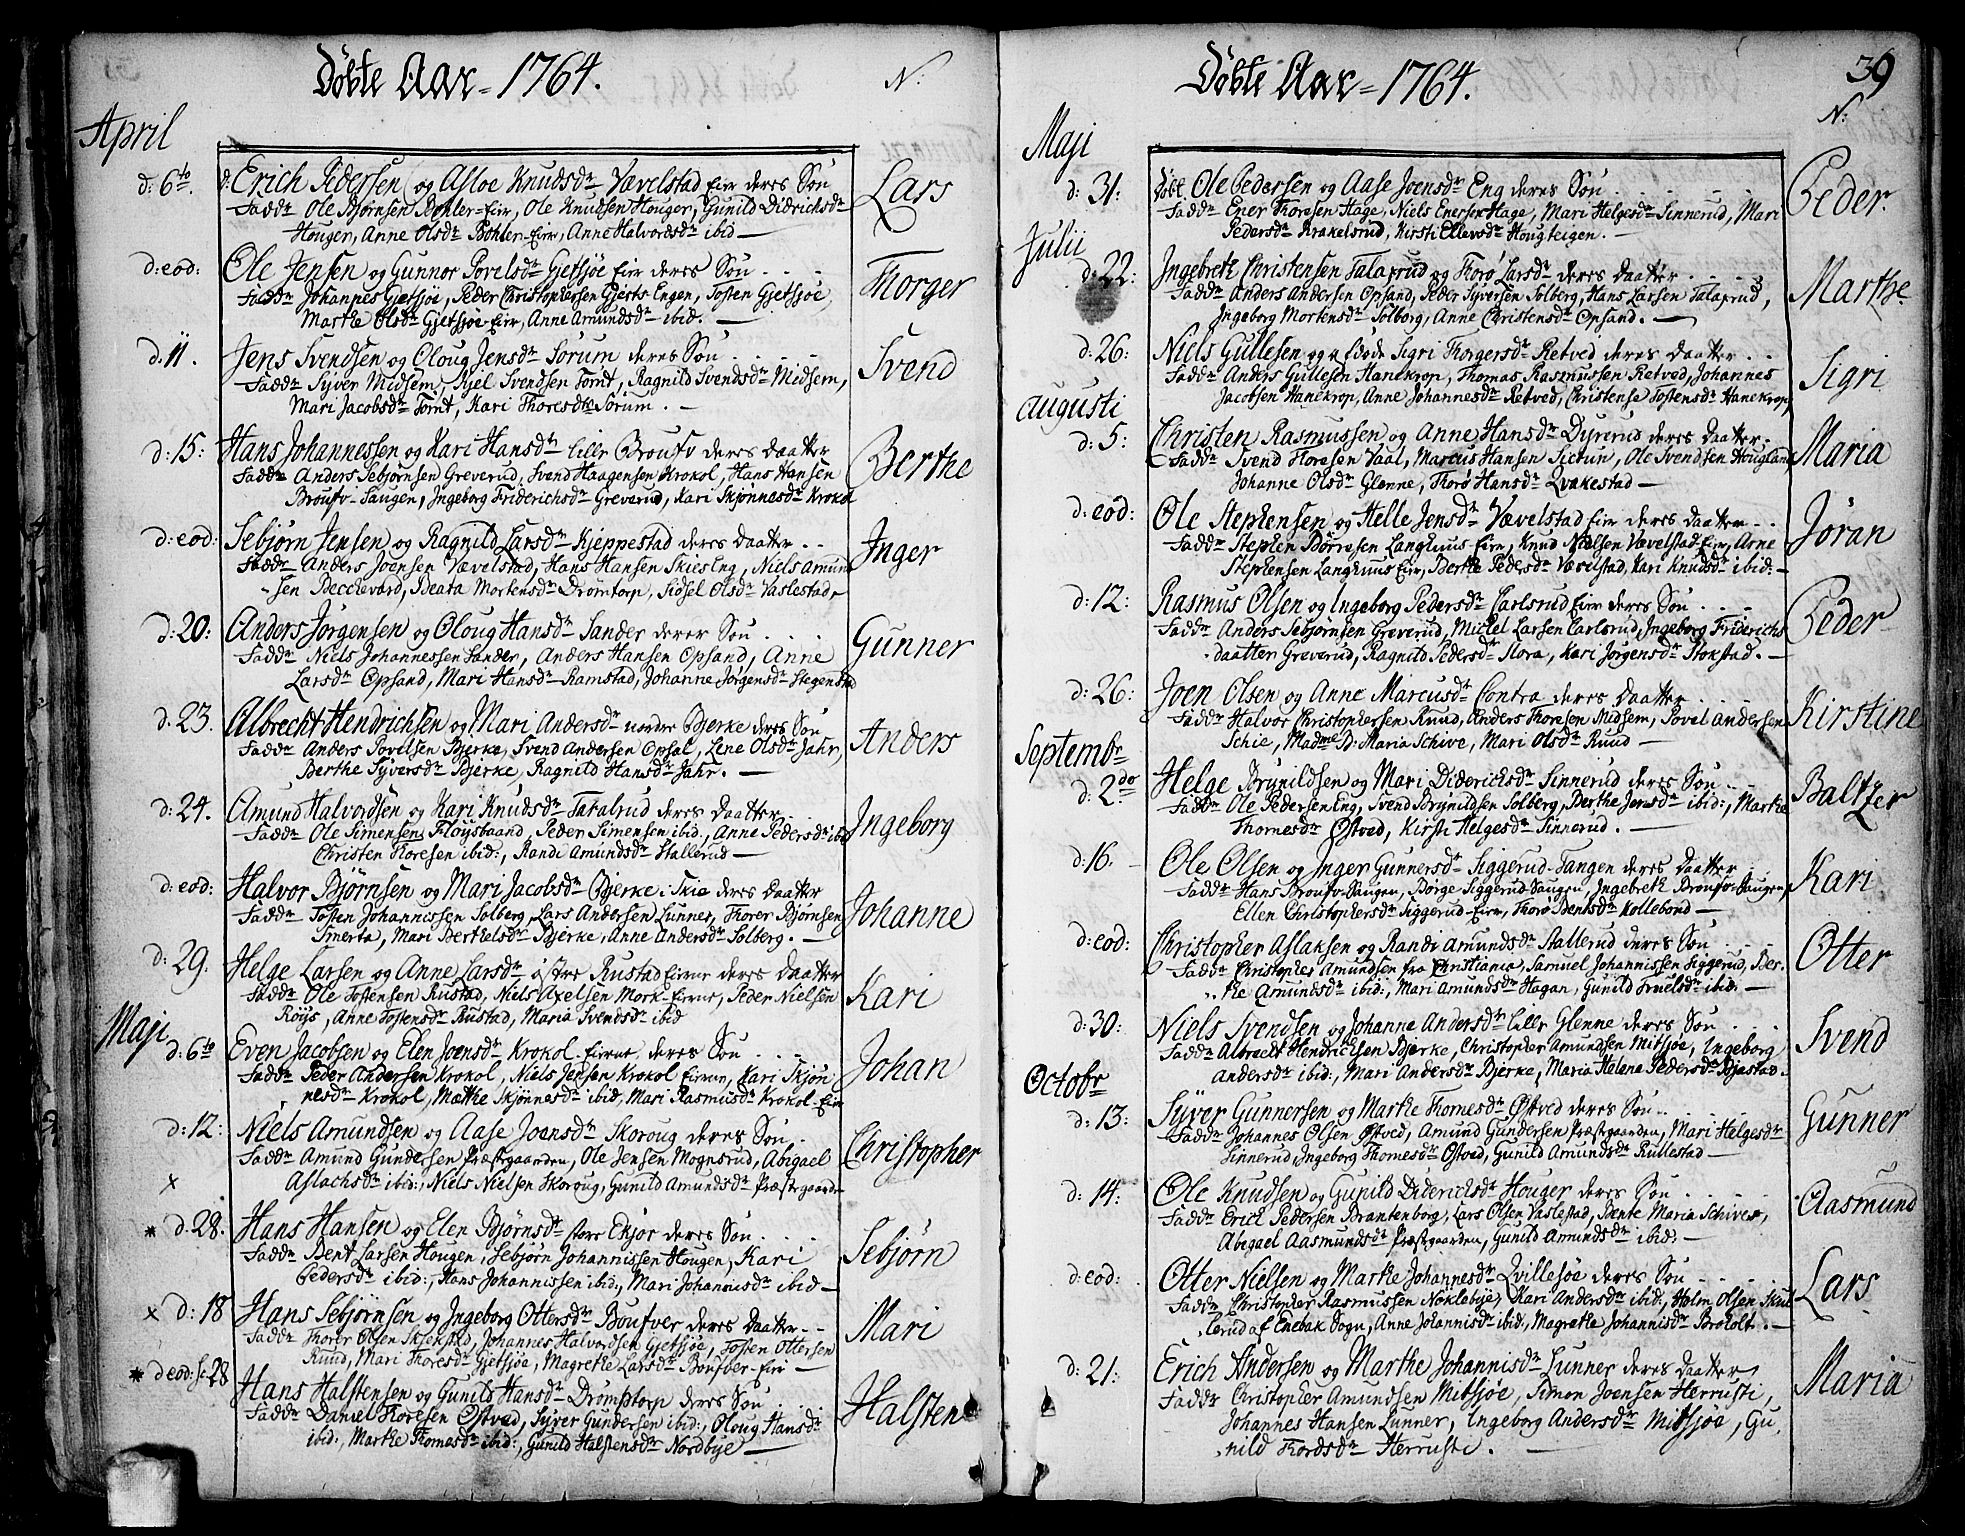 Døbte Aar - 1764.
N:
April
d: 6te. d: Erich Pedersen og Asloe Knudsdr Vævelstad Eier deres Søn Lars
Faddr Ole Bjørnsen Bøhler-Eier, Ole Knudsen Houger, Gunild Didrichsdr
Houger, Anne Olsdr Bøhler-Eier, Anne Halvordsdr ibid —
d: eod: Ole Jensen og Gunnor Povelsdr Gjetsjøe Eier deres Søn Thorger
Faddr Johannes Gjetsjøe, Peder Christophersen Gjerts Engen, Tosten Gjetsjøe,
Marthe Olsdr Gjetsjøe Eier, Anne Amundsdr ibid. —
d: 11. Jens Svendsen og Oloug Jensdr Sorum deres Søn Svend
Faddr Syver Midsem, Kjel Svendsen Tomt, Ragnild Svendsdr Midsem,
Mari Jacobsdr Tomt, Kari Thoresdr Sorum. —
d: 15: Hans Johannessen og Kari Hansdr Lille Broufo deres Daatter Berthe
Faddr Anders Sebjørnsen Greverud, Svend Haagensen Krokol, Hans Hansen
Broufo-Saugen, Ingeborg Friderichsdr Greverud, Kari Skjønnesdr Krokol
d: eod: Sebjørn Jensen og Ragnild Larsdr Kjeppestad deres Daatter Inger
Faddr Anders Joensen Vævelstad, Hans Hansen Skies Eng, Niels Amund
sen Becchevard, Beata Mortensdr Drømtorp, Sidsel Olsdr Vaslestad
d: 20: Anders Jørgensen og Oloug Hansdr Sander deres Søn Gunner
Faddr Niels Johannessen Sander, Anders Hansen Opsand, Anne
Larsdr Opsand, Mari Hansdr Ramstad, Johanne Jørgensdr Stegenstad
d: 23. Albrecht Hendrichsen og Mari Andersdr nordre Bjerke deres Søn Anders
Faddr Anders Povelsen Bjerke, Svend Andersen Opsal, Lene Olsdr Jahr,
Berthe Syversdr Bjerke, Ragnild Hansdr Jahr. —
d: 24. Amund Halvordsen og Kari Knudsdr Talalrud deres Daatter Ingeborg
Faddr Ole Simensen Fløysbaand, Peder Simensen ibid, Anne Pedersdr ibid
Christen Thoresen ibid:, Randi Amundsdr Stallerud —
d: eod: Halvor Bjørnsen og Mari Jacobsdr Bjerke i Skie deres Daatter Johanne
Faddr Tosten Johannissen Solberg, Lars Andersen Lunner, Thorer Bjørnsen
Smerta, Mari Berthelsdr Bjerke, Anne Andersdr Solberg. —
d: 29. Helge Larsen og Anne Larsdr østre Rustad Eierne deres Daatter Kari
Faddr Ole Tostensen Rustad, Niels Axelsen Mork-Eierne, Peder Nielsen
Røiys, Anne Tostensdr Rustad, Maria Svendsdr ibid
Maji
d: 6te Even Jacobsen og Elen Joensdr Krokol-Eierne. deres Søn Johan
Faddr Peder Andersen Krokol, Niels Jensen Krokol Eierne, Kari Skjøn
nesdr Krokol, Mætthe Skjønnesdr ibid, Mari Rasmusdr Krokol-Eier
d: 12: Niels Amundsen og Aase Joensdr Skoroug deres Søn Christopher
Faddr Amund Gundersen Præstgaarden, Ole Jensen Mognsrud, Abigael
x Aslachsdr ibid:, Niels Nielsen Skoroug, Gunild Amundsdr Præstgaarden
* d: 28. Hans Hansen og Elen Bjørnsdr store Ekjor deres Søn Sebjørn
Faddr Bent Larsen Hougen, Sebjørn Johannissen Hougen, Kari
Pedersdr ibid:, Hans Johannissen ibid:, Mari Johannisdr ibid —
x d: 18 Hans Sebjørnsen og Ingeborg Ottersdr Boufver deres Daatter Mari
Faddr Thorer Olsen Skiekold, Johannes Halvordsen Gjetsjøe, Tosten Ottersen
Ruud, Mari Thoresdr Gjetsjøe, Magrethe Larsdr Boufver-Eri —
* d eod: 28 Hans Halstensen og Gunild Hansdr Drømptorp deres Søn Halsten
Faddr Daniel Thoresen Østved, Syver Gundersen ibid:, Oloug Hansdr
ibid:, Marthe Thomesdr ibid:, Gunild Halstensdr Nordbye —
Døbte Aar - 1764.
39
N:
Maji
d: 31: Døbt Ole Pedersen og Aase Joensdr Eng deres Søn Peder.
Faddr Ener Thoresen Hage, Niels Enersen Hage, Mari Helgesdr Sinnerud, Mari
Pedersdr Krakelsrud, Kirsti Ellevsdr Hougteigen. —
Julii
d: 22: Ingebreth Christensen Talaxrud og Thorø Larsdr deres Daatter Marthe
Faddr Anders Andersen Opsand, Peder Syversen Solberg, Hans Larsen Talaxrud,
Ingeborg Mortensdr Solborg, Anne Christensdr Opsand. —
d: 26: Niels Gullesen og Sigri Thorgersdr Retved deres Daatter Sigri
Faddr Anders Gullesen Hanekrop, Thomas Rasmussen Retved, Johannes
Jacobsen Hanekrop, Anne Johannesdr Retved, Christense Tostensdr Hanekrop,
Augusti
d: 5: Christen Rasmussen og Anne Hansdr Dyrerud deres Daatter Maria
Faddr Svend Thoresen Vaal, Marcus Hansen Tictun, Ole Svendsen Hougland
Johanne Olsdr Glenne, Thorø Hansdr Qvakestad —
d: eod: Ole Stephensen og Helle Jensdr Vævelstad Eier deres Daatter Jøran
Faddr Stephen Børresen Langhuus Eier, Knud Nielsen Vævelstad Eier, Arne
Stephensen Langhuus Eier, Berthe Pedersdr Vævelstad, Kari Knudsdr ibid: —
d: 12: Rasmus Olsen og Ingeborg Pedersdr Carlsrud Eier deres Søn Peder
Faddr Anders Sebjørnsen Greverud, Michel Larsen Carlsrud, Ingeborg Friderichs
daatter Greverud, Ragnild Pedersdr Flora, Kari Jørgensdr Stokstad. —
d: 26: Joen Olsen og Anne Marcusdr Contra deres Daatter Kirstine
Faddr Halvor Christophersen Ruud, Anders Thoresen Midsem, Povel Andersen
Schie, Madme D: Maria Schive, Mari Olsdr Ruud —
Septembr
d: 2do Helge Brynildsen og Mari Didericksdr Sinnerud deres Søn Baltzer
Faddr Ole Pedersen Eng, Svend Brynildsen Solberg, Berthe Jensdr ibid:, Marthe
Thomesdr Østved, Kirsti Helgesdr Sinnerud. —
d: 16. Ole Olsen og Inger Gunnersdr Siggerud-Tangen deres Daatter Kari
Faddr Hans Broufo-Saugen, Børge Siggerud Saugen, Ingebreth Broufo-Saugen,
Ellen Christophersdr Siggerud-Eier, Thorø Bentsdr Kollebond —
d: eod: Christopher Aslaksen og Randi Amundsdr Stallerud deres Søn Otter
Faddr Christopher Amundsen fra Christiania, Samuel Johannissen Siggerud, Ber-
the Amundsdr ibid:, Mari Amundsdr Hagan, Gunild Truelsdr ibid: —
d: 30: Niels Svendsen og Johanne Andersdr Lille Glenne deres Søn Svend
Faddr Albrecht Hendrichsen Bjerke, Christopher Amundsen Mitsjøe, Ingeborg
Andersdr ibid:, Mari Andersdr Bjerke, Maria Helena Pedersdr Bjastad.
Octobr
d: 13: Syver Gunnersen og Marthe Thomesdr Østved deres Søn Gunner
Faddr Johannes Olsen Østved, Amund Gundersen Præstgaarden, Mari Helgesdr
Sinnerud, Ingeborg Thomesdr Østved, Gunild Amundsdr Rullestad —
d: 14: Ole Knudsen og Gunild Didericksdr Houger deres Søn Aasmund
Faddr Erich Pedersen Brantenborg, Lars Olsen Vaslestad, Bente Maria Schives,
Abigael Aasmundsdr Præstgaarden, Gunild Amundsdr ibid: —
d: eod: Otter Nielsen og Marthe Johannesdr Qvillesøe deres Søn Lars
Faddr Christopher Rasmussen Nøklebye, Kari Andersdr ibid:, Holm Olsen Skul
lerud af Enebak Sogn, Anne Johannisdr ibid:, Magrethe Johannisdr Brokolt. —
d: 21: Erich Andersen og Marthe Johannisdr Lunner deres Daatter Maria
Faddr Christopher Amundsen Mitsjøe, Simon Joensen Herrusti,
Johannes Hansen Lunner, Ingeborg Andersdr Mitsjøe, Gu,
nild Thordsdr Herruste. —